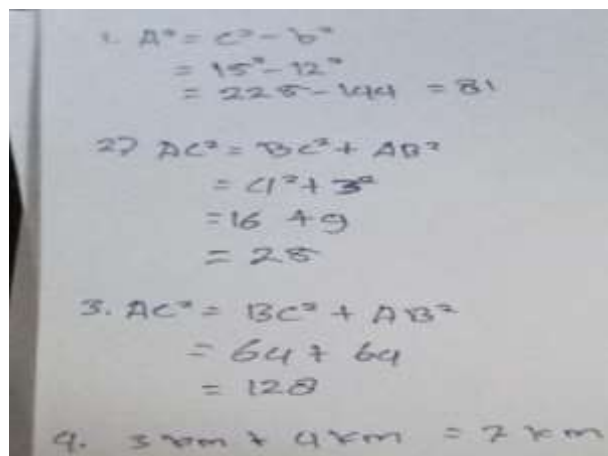 1. A² = c² - b²
= 15² - 12²
= 225 - 144 = 81
2) AC² = BC² + AB²
= 4² + 3²
= 16 + 9
= 25
3. AC² = BC² + AB²
= 64 + 64
= 128
4. 3 km + 4 km = 7 km